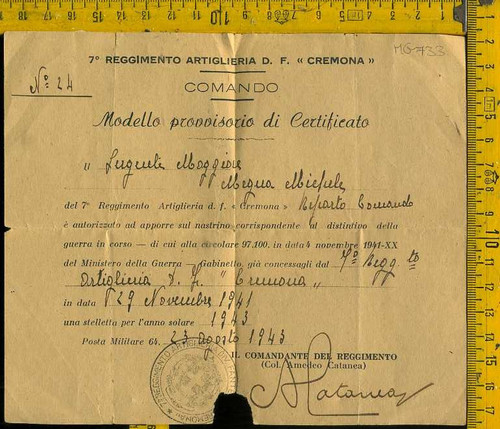 MG-733
7° REGGIMENTO ARTIGLIERIA D. F. « CREMONA »
N° 24
COMANDO
Modello provvisorio di Certificato
" Sergente Maggiore
Megna Michele
del 7° Reggimento Artiglieria d. f. « Cremona » Reparto Comando
è autorizzato ad apporre sul nastrino corrispondente al distintivo della
guerra in corso — di cui alla circolare 97.100. in data 4 novembre 1941-XX
del Ministero della Guerra — Gabinetto, già concessogli dal 7° Regg.to
Artiglieria D. F. " Cremona "
in data 29 Novembre 1941
una stelletta per l'anno solare 1943
Posta Militare 64. 23 agosto 1943
IL COMANDANTE DEL REGGIMENTO
(Col. Amedeo Catanea)
A Catanea